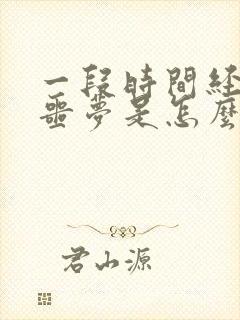 一段時間经
噩夢是怎麼
君山源